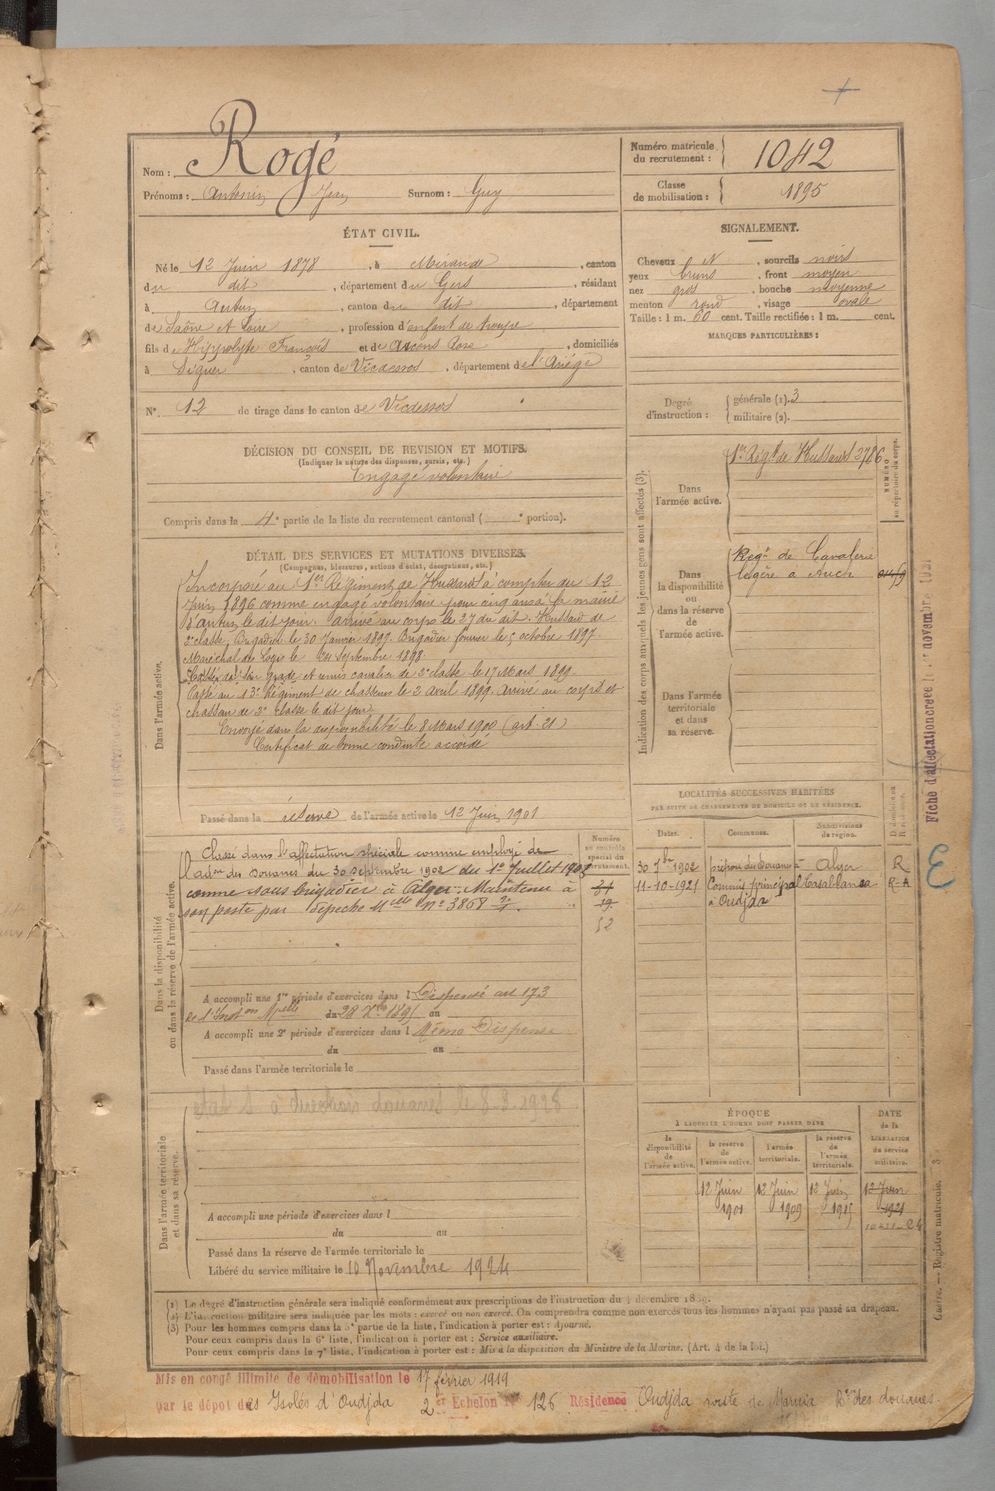 Nom : Rogé
Prénoms : Antonin Jean Surnom : Guy
Numéro matricule du recrutement : 1042
Classe de mobilisation : 1895
ÉTAT CIVIL.
Né le 12 Juin 1878, à Mirande, canton
du dit, département du Gers, résidant
à Autun, canton du dit, département
de Saône et Loire, profession d'enfant de troupe
fils de Hippolyte François et de Ascons Rose, domiciliés
à Siguer, canton de Vicdessos, département de l'Ariège
N° 12 de tirage dans le canton de Vicdessos
SIGNALEMENT.
Cheveux et, sourcils noirs
yeux bruns, front moyen
nez gros, bouche moyenne
menton rond, visage ovale
Taille : 1 m. 60 cent. Taille rectifiée : 1 m. cent.
MARQUES PARTICULIÈRES :
Degré d'instruction : générale (1). 3
militaire (2).
DÉCISION DU CONSEIL DE REVISION ET MOTIFS.
(Indiquer la nature des dispenses, sursis, etc.)
Engagé volontaire
Compris dans la 4e partie de la liste du recrutement cantonal ( e portion).
DÉTAIL DES SERVICES ET MUTATIONS DIVERSES.
(Campagnes, blessures, actions d'éclat, décorations, etc.)
Dans l'armée active.
Incorporé au 1er Régiment de Hussards à compter du 12
Juin 1896 comme engagé volontaire pour cinq ans à la mairie
d'Autun le dit jour. Arrivé au corps le 27 du dit. Hussard de
2e classe, Brigadier le 30 Janvier 1897. Brigadier fourrier le 5 octobre 1897.
Maréchal des logis le 24 Septembre 1898.
Cassé de son grade et remis cavalier de 2e classe le 17 Mars 1899.
Passé au 13e Régiment de chasseurs le 2 Avril 1899. Arrivé au corps et
chasseur de 2e classe le dit jour.
Envoyé dans la disponibilité le 8 Mars 1900 (art. 21)
Certificat de bonne conduite accordé
Passé dans la réserve de l'armée active le 12 Juin 1901
Indication des corps auxquels les jeunes gens sont affectés (3).
NUMÉRO au répertoire du corps.
Dans l'armée active.
1er Régt de Hussards 2786
Dans la disponibilité ou dans la réserve de l'armée active.
Régt de Cavalerie
légère à Auch
Dans l'armée territoriale et dans sa réserve.
Fiche d'affectation créée le 1er novembre
LOCALITÉS SUCCESSIVES HABITÉES
PAR SUITE DE CHANGEMENTS DE DOMICILE OU DE RÉSIDENCE.
Dates. Communes. Subdivisions de région. D. domicile ou R. résidence.
30 7bre 1902 préposé des Douanes à Alger R
11-10-1921 Commis principal Casablanca R-A
à Oudjda
E
Dans la disponibilité ou dans la réserve de l'armée active.
Numéro au contrôle spécial du recrutement.
Classé dans l'affectation spéciale comme employé de
l'adon des Douanes du 30 Septembre 1902 du 1er Juillet
comme sous brigadier à Alger. Maintenu à
son poste par Dépêche Mlle n° 3868
52
A accompli une 1re période d'exercices dans l Dispensé art 173
de l'Inston Mlle du 28 Xbre 1895 au
A accompli une 2e période d'exercices dans l Même Dispense
du au
Passé dans l'armée territoriale le
Dans l'armée territoriale et dans sa réserve.
état à direction douanes le 8-3-1928
A accompli une période d'exercices dans l
du au
Passé dans la réserve de l'armée territoriale le
Libéré du service militaire le 10 Novembre 1924
ÉPOQUE
À LAQUELLE L'HOMME DOIT PASSER DANS
la disponibilité de l'armée active. la réserve de l'armée active. l'armée territoriale. la réserve de l'armée territoriale.
DATE de la LIBÉRATION du service militaire.
12 Juin 1901 12 Juin 1909 12 Juin 1915 12 Juin 1921
(1) Le degré d'instruction générale sera indiqué conformément aux prescriptions de l'instruction du 4 décembre 1889.
(2) L'instruction militaire sera indiquée par les mots : exercé ou non exercé. On comprendra comme non exercés tous les hommes n'ayant pas passé au drapeau.
(3) Pour les hommes compris dans la 5e partie de la liste, l'indication à porter est : Ajourné.
Pour ceux compris dans la 6e liste, l'indication à porter est : Service auxiliaire.
Pour ceux compris dans la 7e liste, l'indication à porter est : Mis à la disposition du Ministre de la Marine. (Art. 4 de la loi.)
Guerre. — Registre matricule. 3
Mis en congé illimité de démobilisation le 17 février 1919
par le dépôt des Isolés d'Oudjda 2e Echelon N° 126 Résidence Oudjda route de Marnia Bn des douanes.